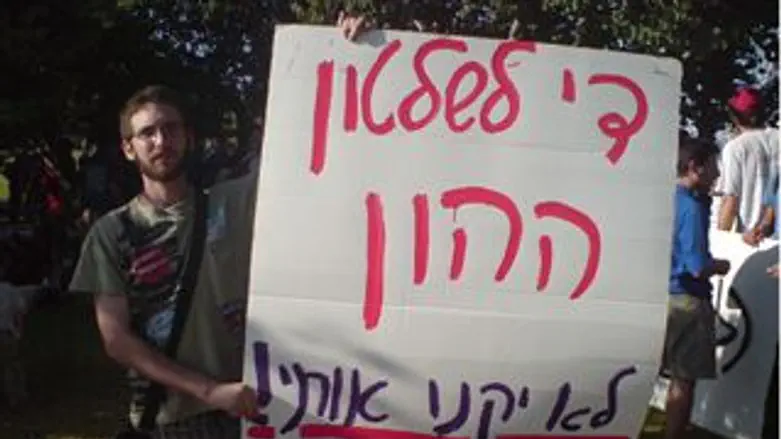 די לשלטון
ההון
לא יקנו אותי!